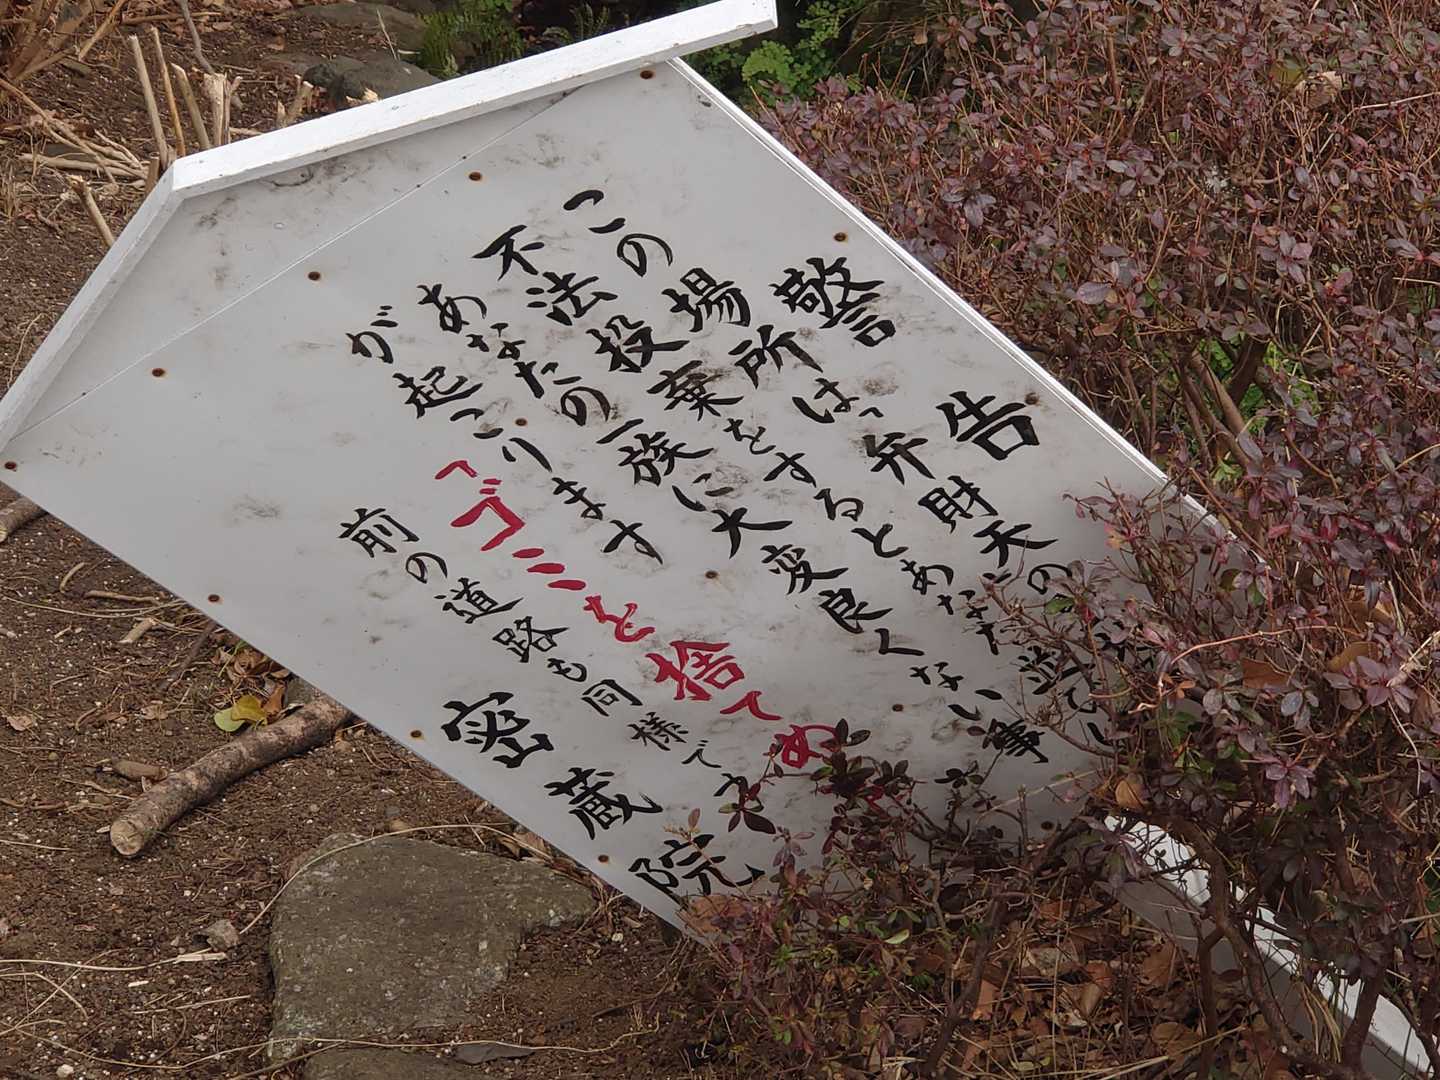 警告
この場所は、弁財天の
不法投棄をするとあなた
あなたの一族に大変良くない事
が起こります
「ゴミを捨てめ
前の道路も同様です
密蔵院